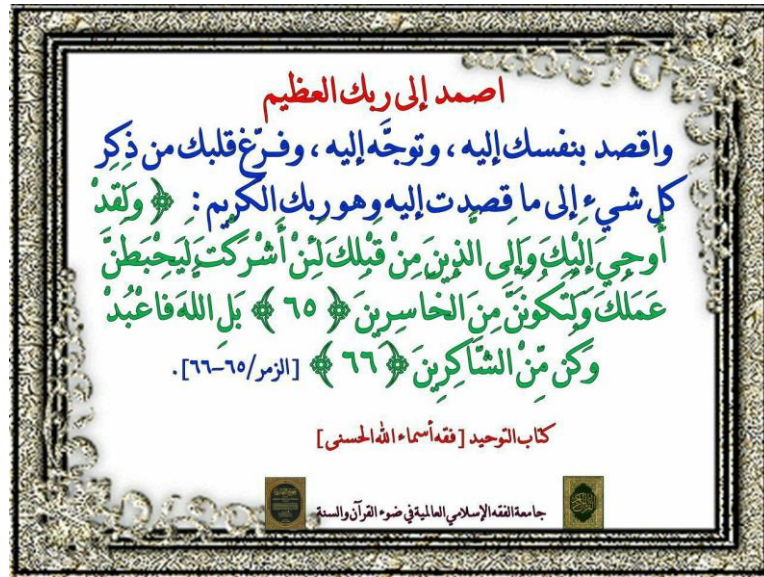 اصمد إلى ربك العظيم
واقصد بنفسك إليه ، وتوجَّه إليه ، وفرّغ قلبك من ذكر
كل شيء إلى ما قصدت إليه وهو ربك الكريم : ﴿ وَلَقَدْ
أُوحِيَ إِلَيْكَ وَإِلَى الَّذِينَ مِنْ قَبْلِكَ لَئِنْ أَشْرَكْتَ لَيَحْبَطَنَّ
عَمَلُكَ وَلَتَكُونَنَّ مِنَ الْخَاسِرِينَ ﴿ ٦٥ ﴾ بَلِ اللَّهَ فَاعْبُدْ
وَكُن مِّنْ الشَّاكِرِينَ ﴿ ٦٦ ﴾ [الزمر/٦٥-٦٦] .
كتاب التوحيد [ فقه أسماء الله الحسنى ]
جامعة الفقه الإسلامي العالمية في ضوء القرآن والسنة